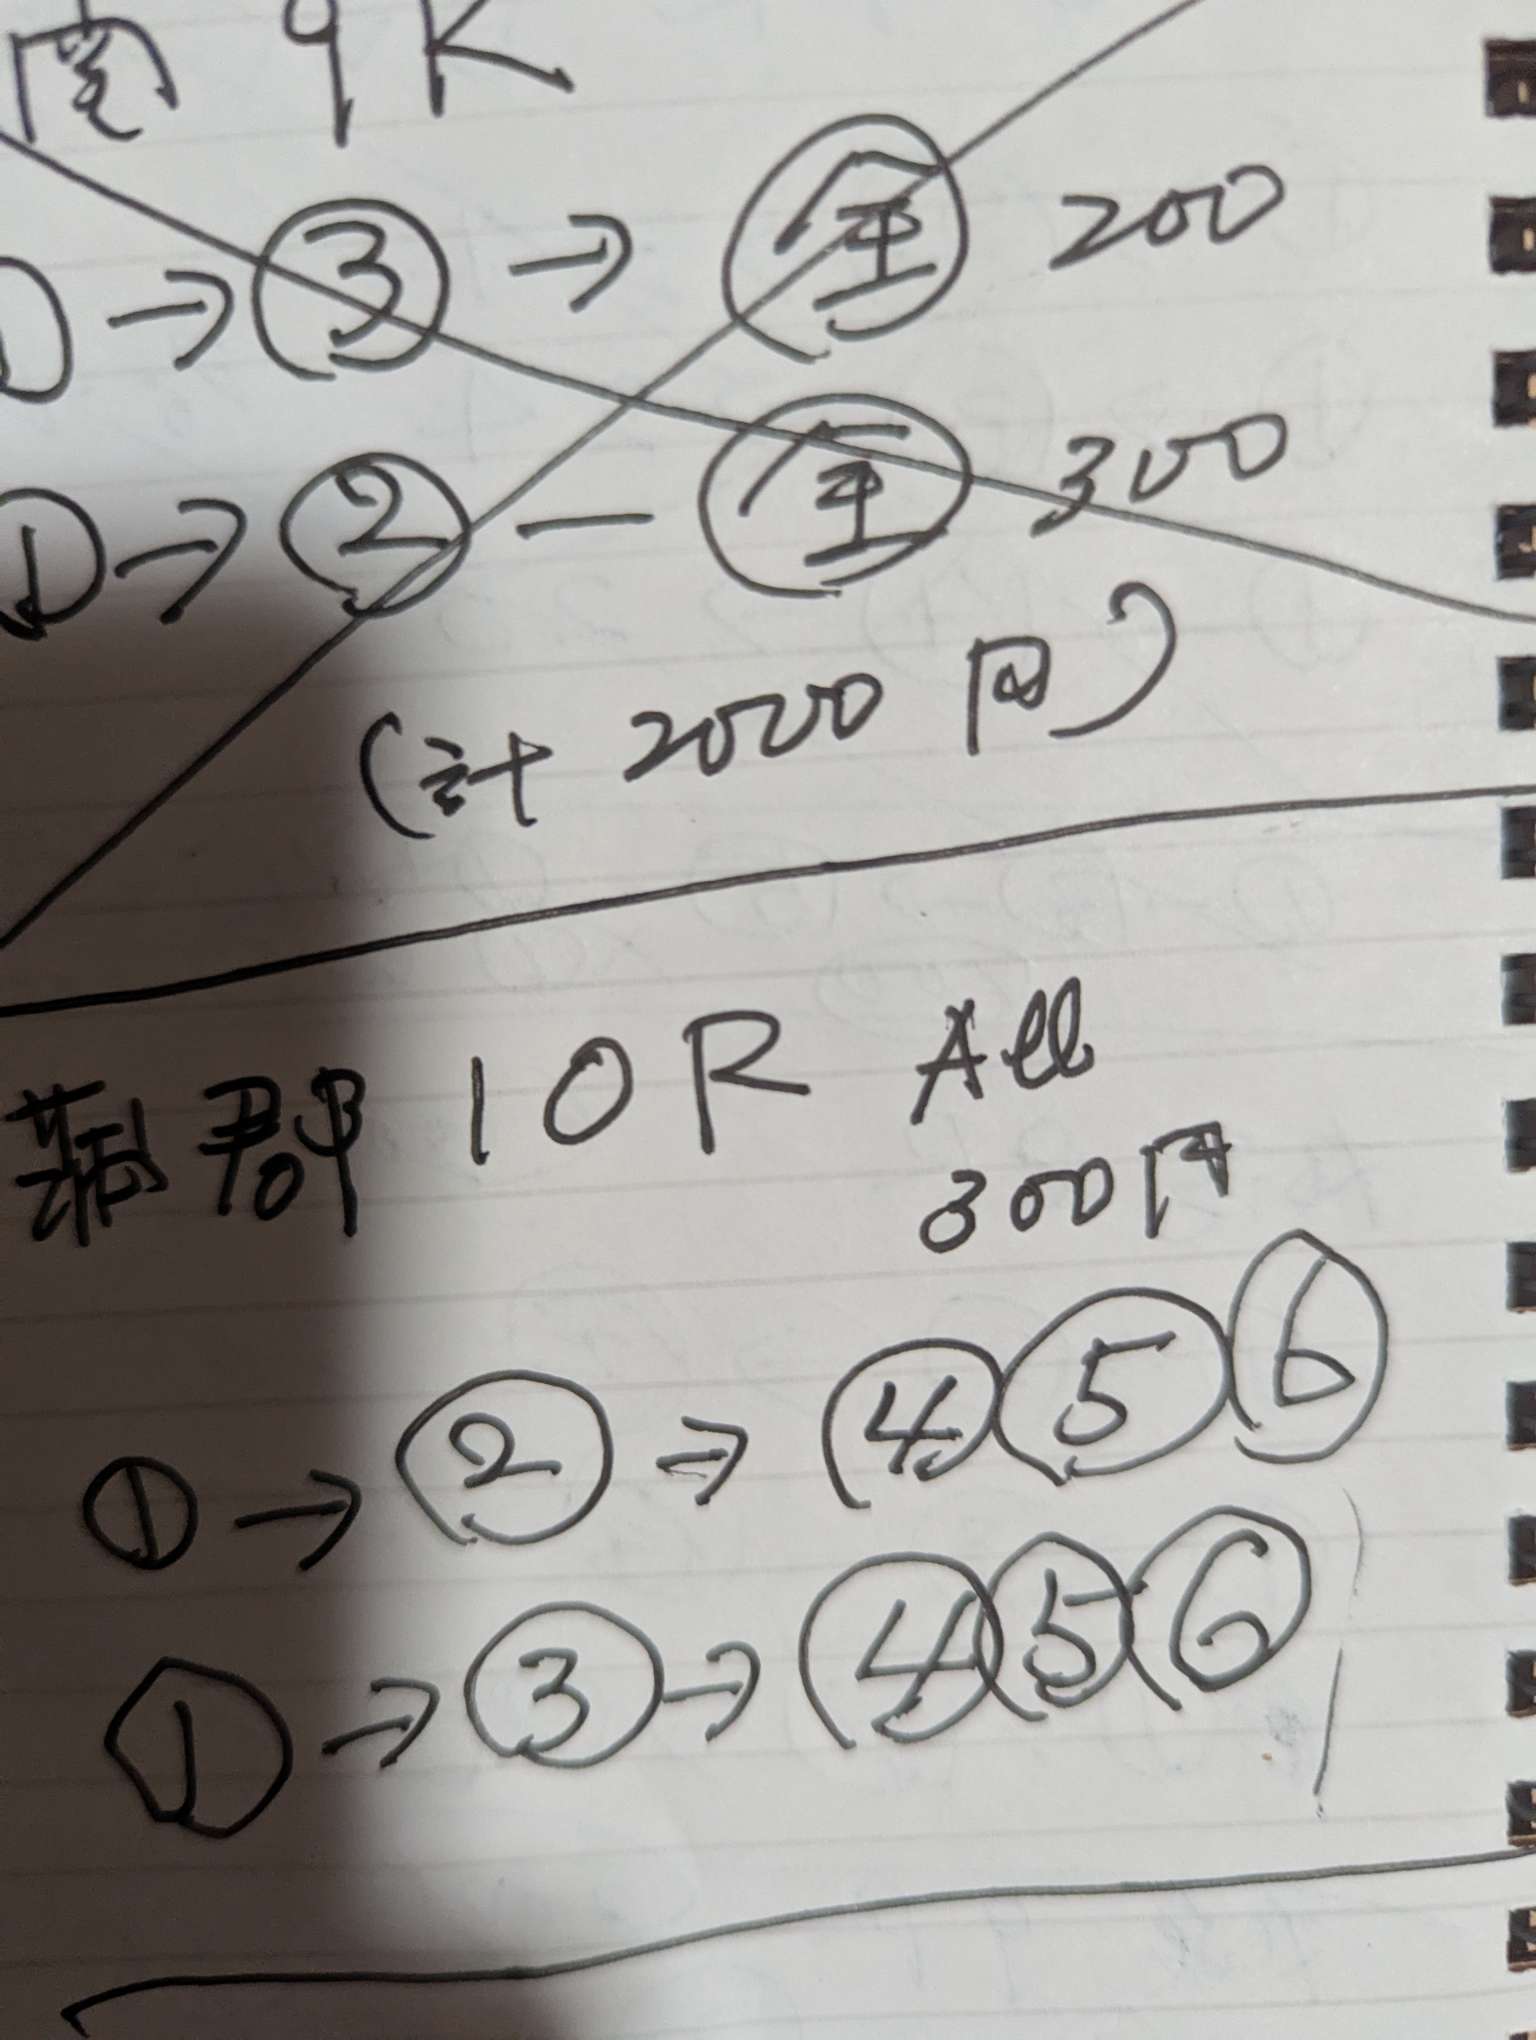 関 9R
① → ③ → 全 200
① → ② － 全 300
(計 2000 円)
蒲郡 10R All
300円
① → ② → ④⑤⑥
① → ③ → ④⑤⑥